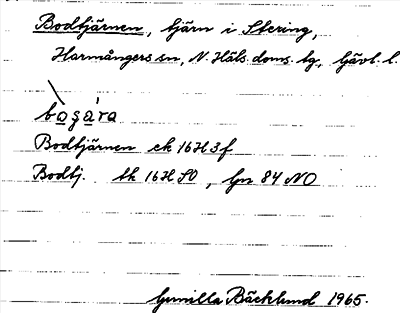 Bodtjärnen, tjärn i Stering,
Harmångers sn, N. Häls. doms. tg., Gävl. l.
bogára
Bodtjärnen ek 16H3f
Bodtj. tk 16H SO, Gn 84 NO
Gunilla Bäcklund 1965.